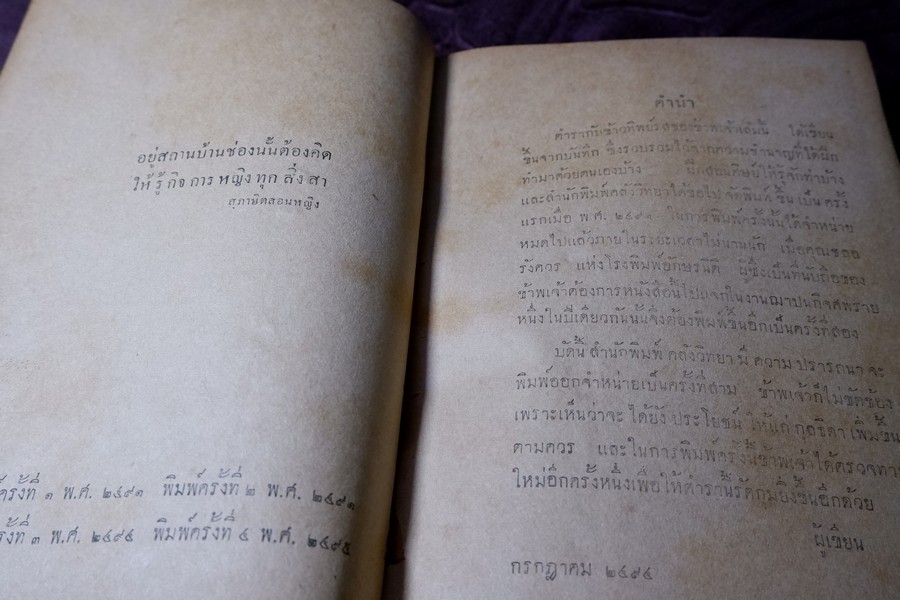 อยู่สถานบ้านช่องนั้นต้องคิด
ให้ รู้ กิจ การ หญิง ทุก สิ่ง สา
สุภาษิตสอนหญิง
ครั้งที่ ๑ พ.ศ. ๒๔๙๑ พิมพ์ครั้งที่ ๒ พ.ศ. ๒๔๙๑
ครั้งที่ ๓ พ.ศ. ๒๔๙๔ พิมพ์ครั้งที่ ๔ พ.ศ. ๒๔๙๕
คำนำ
ตำรากับข้าวทิพย์รสของข้าพเจ้าเล่มนี้ ได้เขียน
ขึ้นจากบันทึก ซึ่งรวบรวมไว้จากความชำนาญที่ได้ฝึก
ทำมาด้วยตนเองบ้าง มีผู้สอนศิษย์ให้รู้จักทำบ้าง
และสำนักพิมพ์คลังวิทยาได้ขอไป จัดพิมพ์ ขึ้น เป็น ครั้ง
แรกเมื่อ พ.ศ. ๒๔๙๑ ในการพิมพ์ครั้งนั้นได้จำหน่าย
หมดไปแล้วภายในระยะเวลาไม่นานนัก เมื่อคุณชลอ
รังควร แห่งโรงพิมพ์อักษรนิติ ผู้ซึ่งเป็นที่นับถือของ
ข้าพเจ้าต้องการหนังสือนี้ไปแจกในงานฌาปนกิจศพราย
หนึ่งในปีเดียวกันนั้นจึงต้องพิมพ์ขึ้นอีกเป็นครั้งที่สอง
บัดนี้ สำนักพิมพ์ คลังวิทยา มี ความ ปรารถนา จะ
พิมพ์ออกจำหน่ายเป็นครั้งที่สาม ข้าพเจ้าก็ไม่ขัดข้อง
เพราะเห็นว่าจะ ได้ยัง ประโยชน์ ให้แก่ กุลธิดา เพิ่มขึ้น
ตามควร และในการพิมพ์ครั้งนี้ข้าพเจ้าได้ตรวจทาน
ใหม่อีกครั้งหนึ่งเพื่อให้ตำรานี้รัดกุมยิ่งขึ้นอีกด้วย
ผู้เขียน
กรกฎาคม ๒๔๙๔